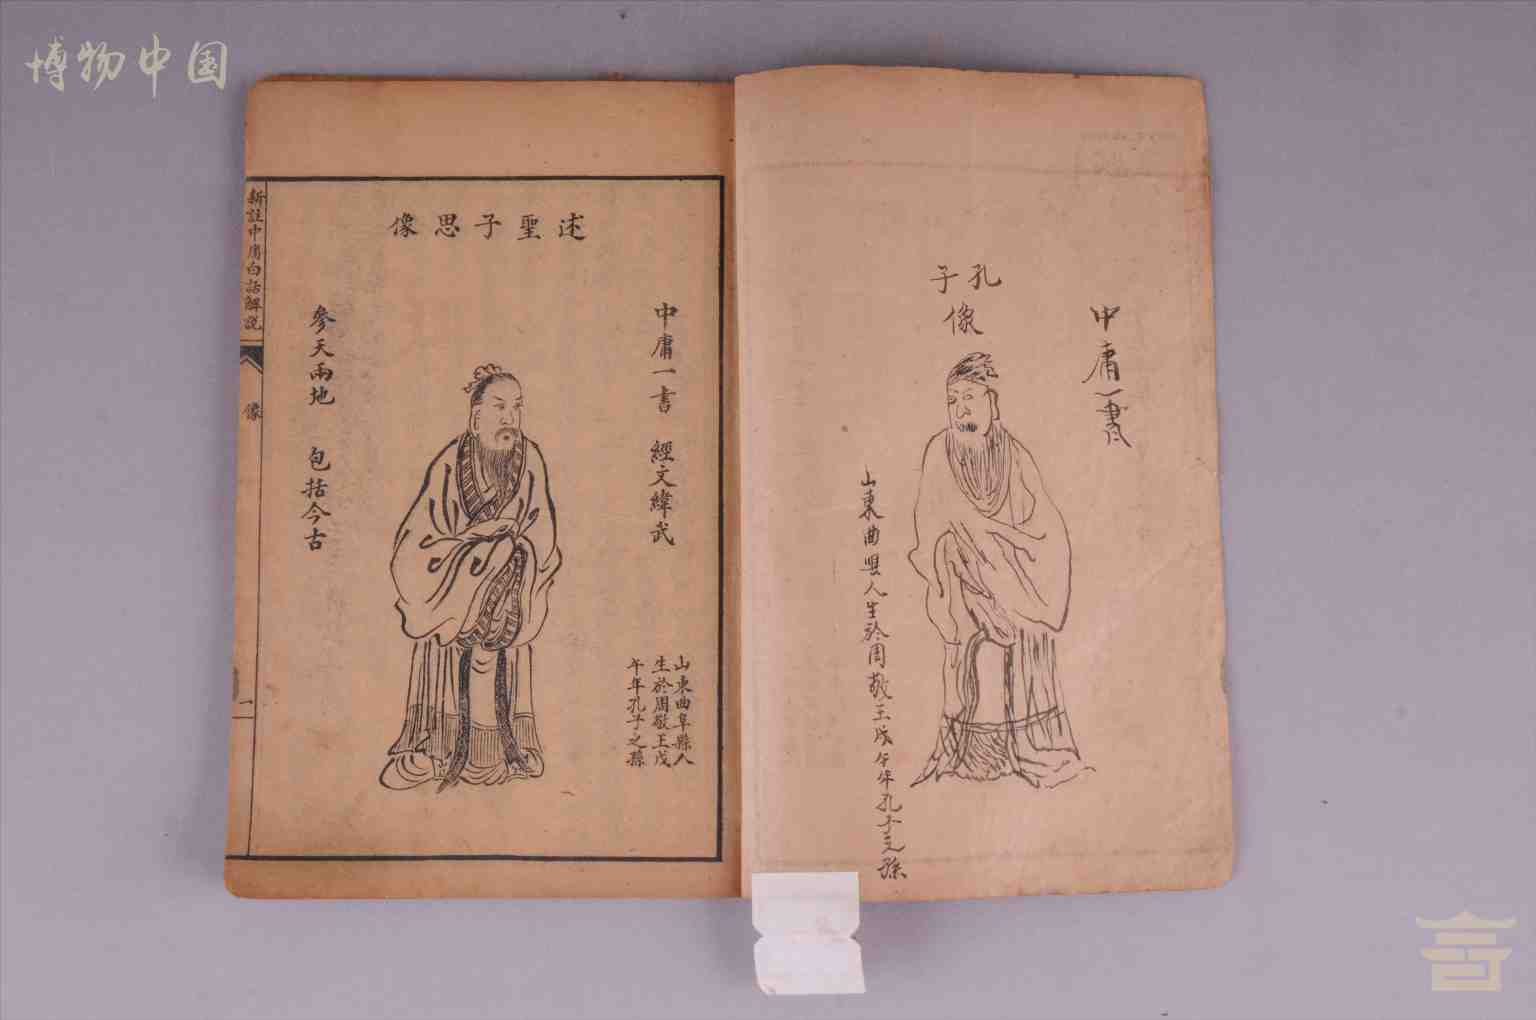 博物中国
孔子
像
中庸一書
山東曲興人生於周敬王戊午年孔子之孫
述聖子思像
中庸一書 經文緯武
山東曲阜縣人
生於周敬王戊
午年孔子之孫
參天兩地 包括今古
新註中庸白話解說
像
一